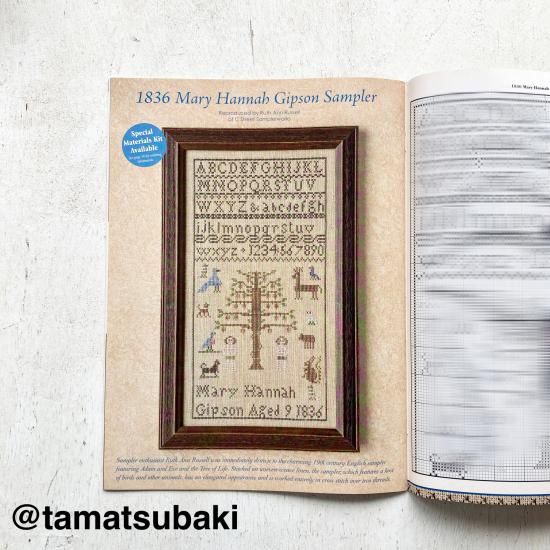 1836 Mary Hannah Gipson Sampler
Reproduced by Ruth Ann Russell
of C Street Samplerworks
Special
Materials Kit
Available
ABCDEFGHIJKL
MNOPQRSTUV
WXYZ&abcdefgh
ijklmnopqrstuv
wxyz+1234567890
Mary Hannah
Gipson Aged 9 1836
Sampler enthusiast Ruth Ann Russell was immediately drawn to the charming 19th century English sampler
featuring Adam and Eve and the Tree of Life. Stitched on uneven-weave linen, the sampler, which features a host
of birds and other animals, has an elongated appearance and is worked entirely in cross stitch over two threads.
1836 Mary Hannah
@tamatsubaki